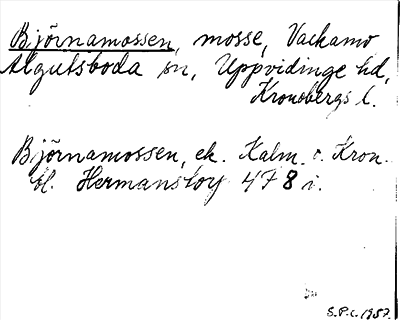 Björnamossen, mosse, Vackamo
Algutsboda sn, Uppvidinge hd,
Kronobergs l.
Björnamossen, ek. Kalm. o. Kron.
bl. Hermanstorp 4F8 i.
S.P.C. 1957.